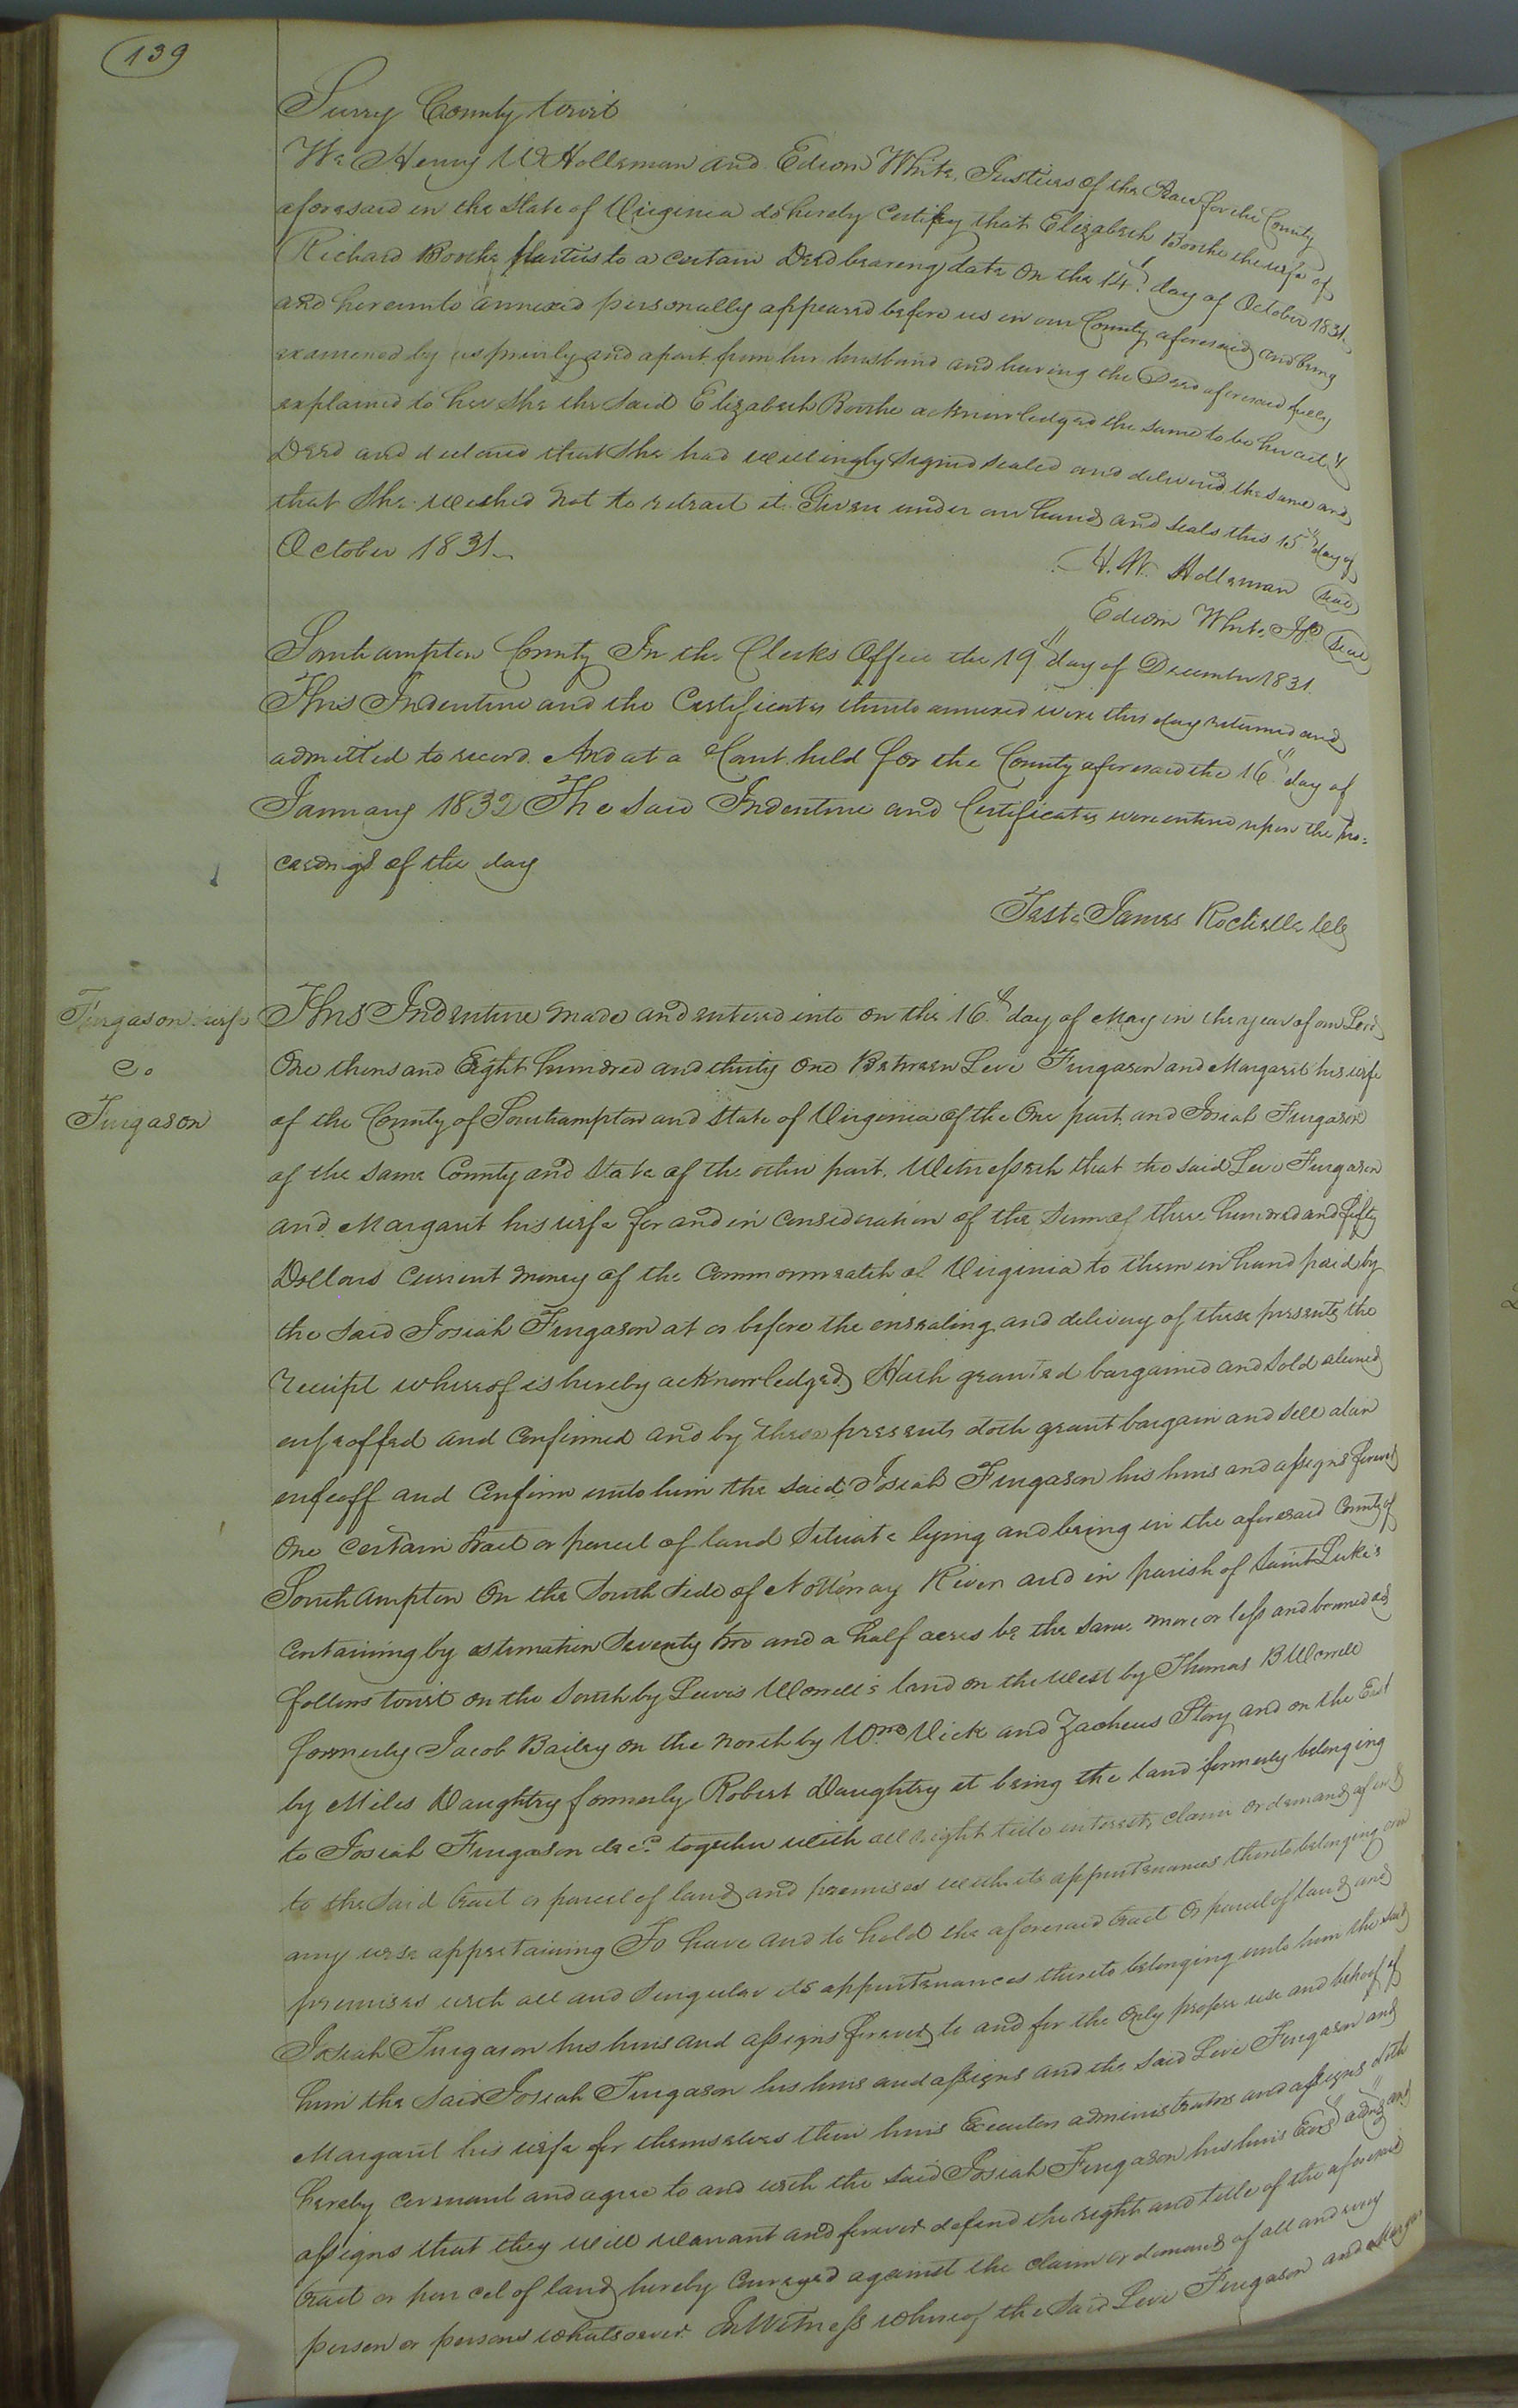 139
Surry County towit
We Henry W Holleman and Edwin White, Justices of the Peace for the County
aforesaid in the State of Virginia do hereby Certify that Elizabeth Boothe the wife of
Richard Boothe parties to a certain Deed bearing date On the 14th day of October 1831
and hereunto annexed personally appeared before us in our County aforesaid and being
examined by us privily and apart from her husband and having the Deed aforesaid fully
explained to her She the Said Elizabeth Boothe acknowledged the same to be her act &
Deed and declared that She had willingly Signed Sealed and delivered the same and
that She wished not to retract it. Given under our hands and Seals this 15th day of
October 1831
H. W. Holleman (Seal)
Edwin White JP (Seal)
Southampton County In the Clerks Office the 19th day of December 1831.
This Indenture and the Certificates thereto annexed were this day returned and
admitted to record. And at a Court held for the County aforesaid the 16th day of
January 1832 The Said Indenture and Certificates were entered upon the pro=
ceedings of the day
Teste James Rochelle Clk
Furgason & wife
To
Furgason
This Indenture made and entered into on this 16th day of May in the year of our Lord
One thousand Eight hundred and thirty One Between Levi Furgason and Margaret his wife
of the County of Southampton and State of Virginia of the One part and Josiah Furgason
of the same County and State of the other part. Witnesseth that the said Levi Furgason
and Margaret his wife for and in Consideration of the Sum of three hundred and fifty
Dollars Current money of the Commonwealth of Virginia to them in hand paid by
the Said Josiah Furgason at or before the ensealing and delivery of these presents the
receipt whereof is hereby acknowledged Hath granted bargained and Sold aliened
enfeoffed and Confirmed and by these presents doth grant bargain and Sell alien
enfeoff and Confirm unto him the Said Josiah Furgason his heirs and assigns forever
One Certain tract or parcel of land Situate lying and being in the aforesaid County of
Southampton On the South Side of Nottoway River and in parish of Saint Luke's
Containing by estimation Seventy two and a half acres be the same more or less and bounded as
follows towit on the South by Lewis Worrell's land on the West by Thomas B Worrell
formerly Jacob Bailey on the north by Wm Vick and Zacheus Story and on the East
by Miles Daughtry formerly Robert Daughtry it being the land formerly belonging
to Josiah Furgason decd together with all right title interest claim or demand of in &
to the Said tract or parcel of land and premises with its appurtenances thereto belonging or in
any wise appertaining To have and to hold the aforesaid tract or parcel of land and
premises with all and Singular its appurtenances thereto belonging unto him the said
Josiah Furgason his heirs and assigns forever to and for the Only proper use and behoof of
him the Said Josiah Furgason his heirs and assigns and the Said Levi Furgason and
Margaret his wife for themselves their heirs Executors administrators and assigns doth
hereby covenant and agree to and with the Said Josiah Furgason his heirs Exors admrs and
assigns that they will warrant and forever defend the right and title of the aforesaid
tract or parcel of land hereby Conveyed against the claim or demands of all and every
person or persons whatsoever. In Witness whereof the Said Levi Furgason and Margar